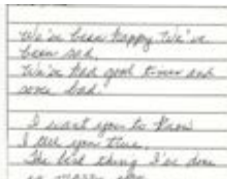 We've been happy We've
been sad.
We've had good times and
some bad.
I want you to know
I tell you true,
The best thing I've done
is marry you